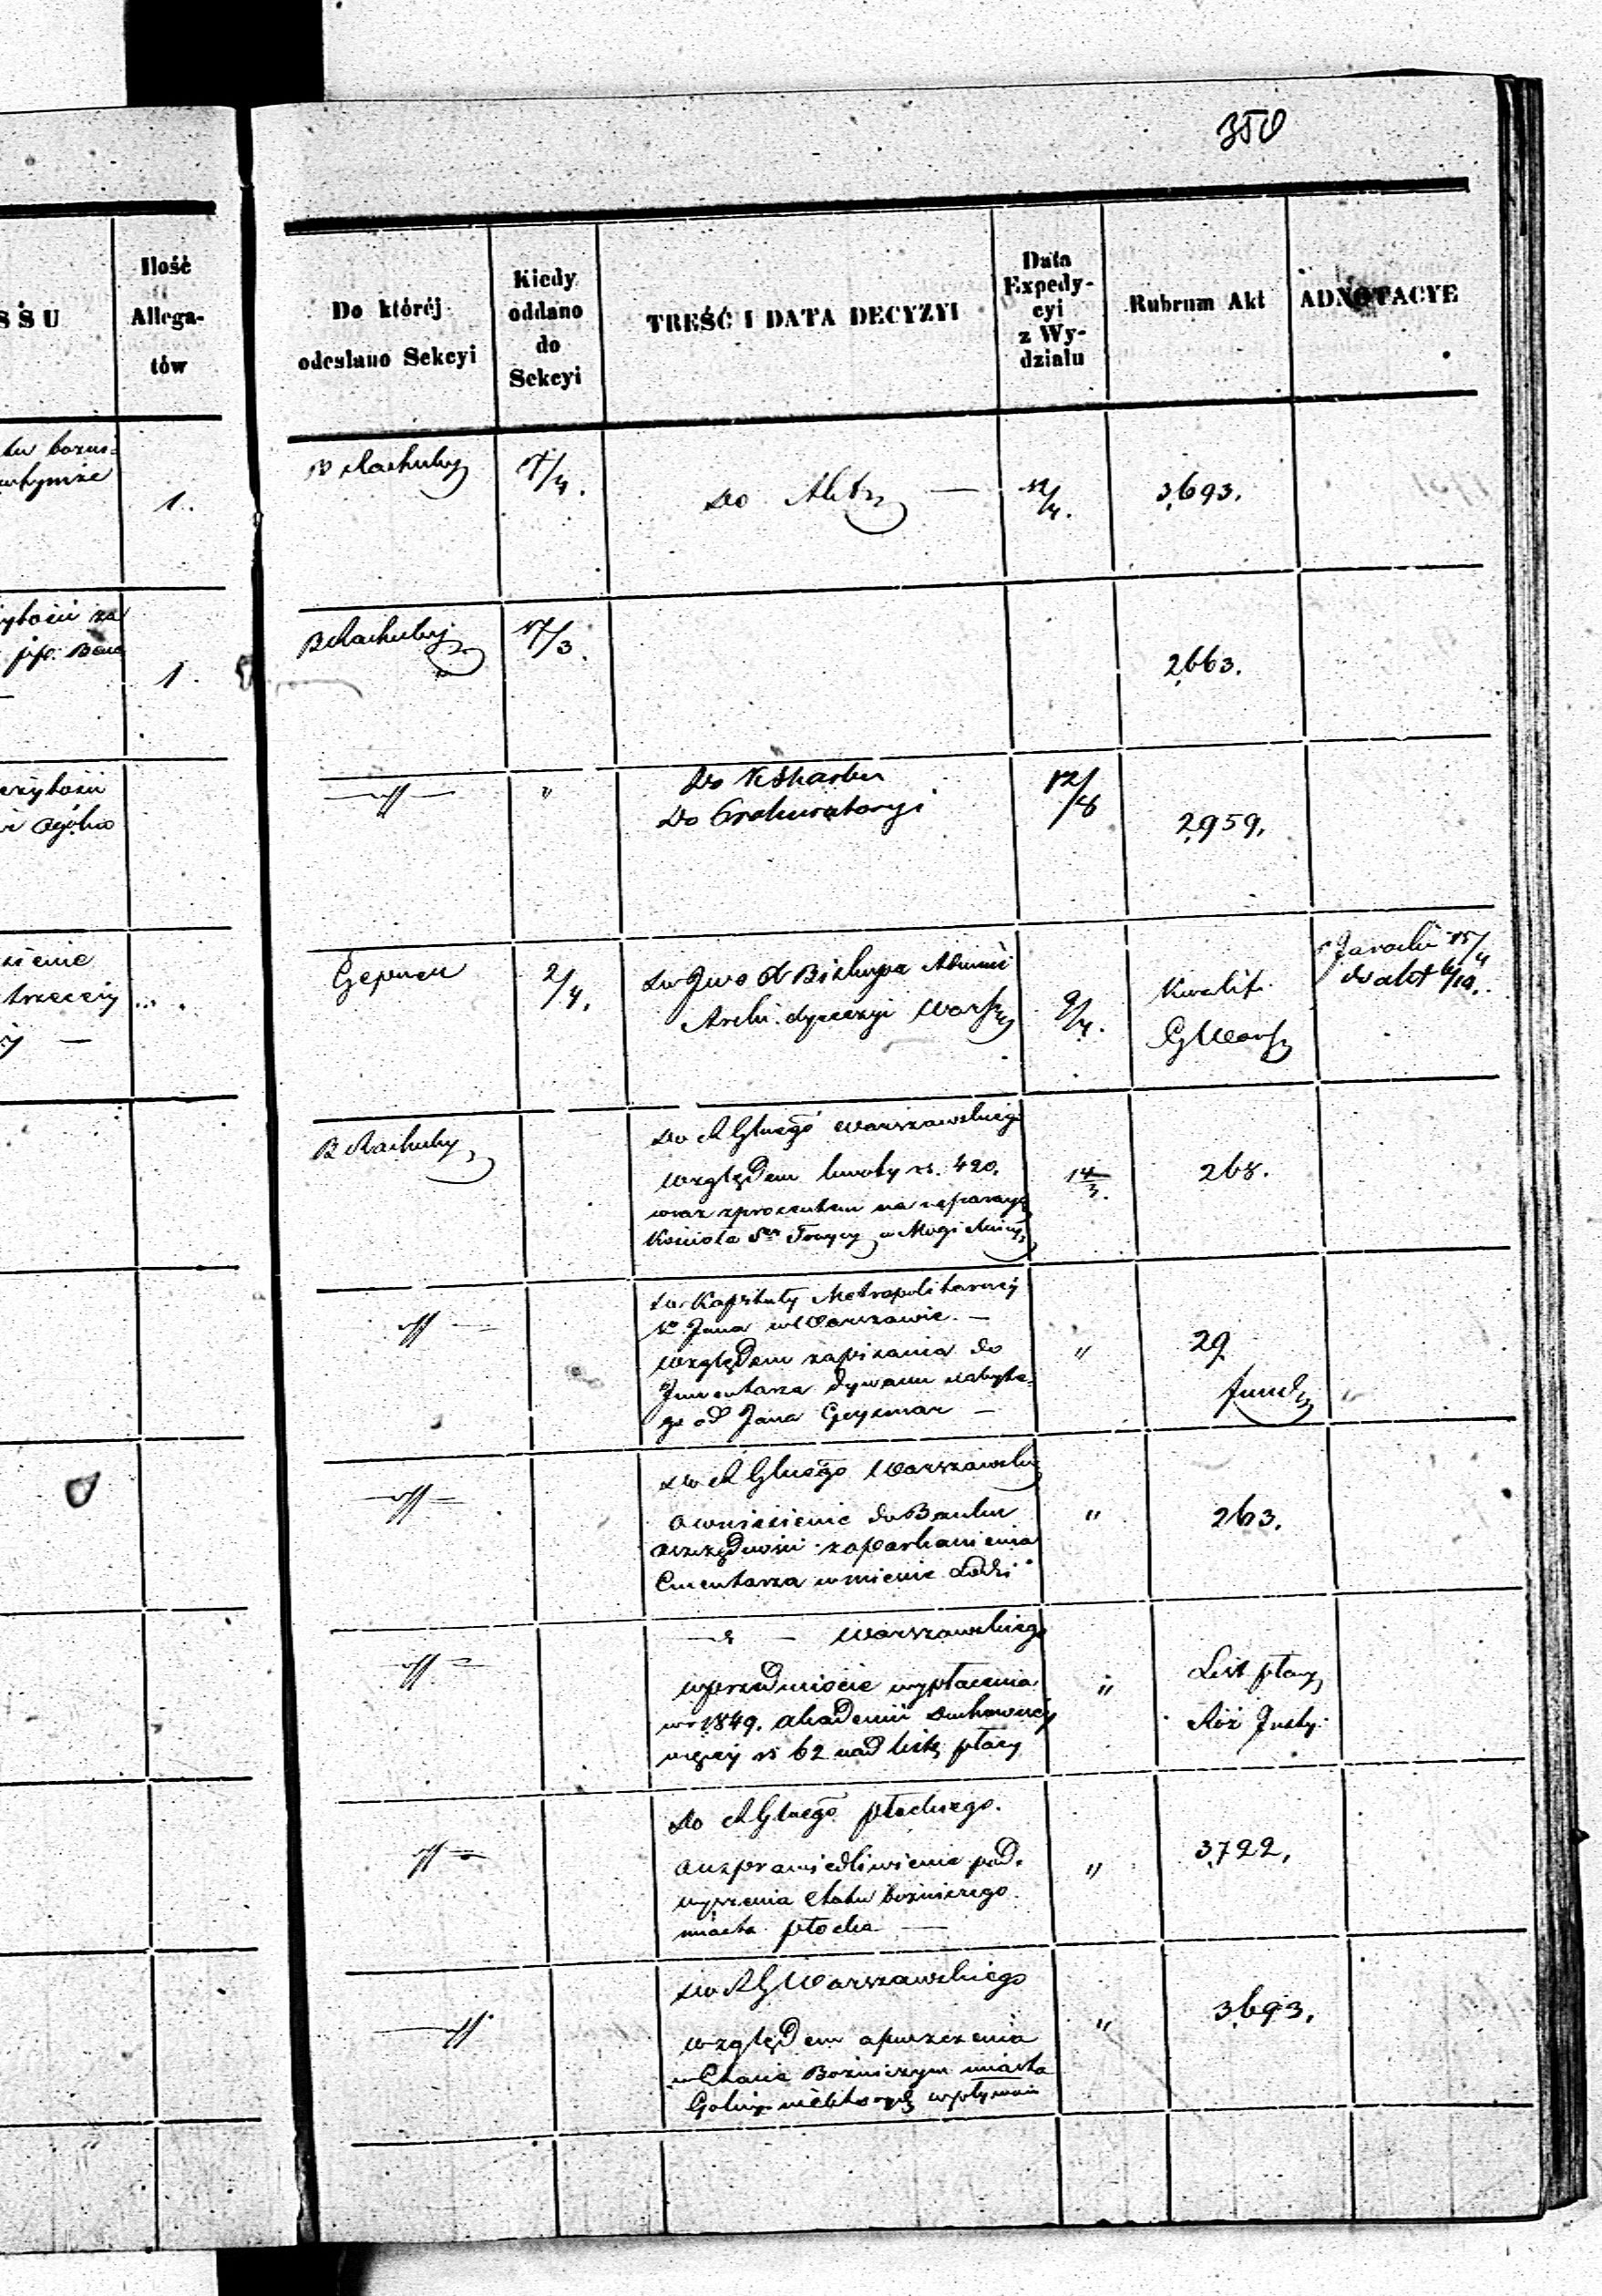 350
SSU
Ilość
Allega-
tów
Do któréj
odesłano Sekcyi
Kiedy
oddano
do
Sekcyi
TREŚĆ I DATA DECYZYI
Data
Expedy-
cyi
z Wy-
działu
Rubrum Akt
ADNOTACYE
1.
B Rachuby
17/4.
do Akt
12/4.
3,693.
1.
B Rachuby
17/3.
2,663.
"
Do Skarbu
Do Prokuratoryi
12/8
2,959.
Gepner
2/4.
do Biskupa Admini
Archi. dyecezyi Warsz
9/4.
Kwalif.
G Warsz
B Rachuby
do R Glnego Warszawskiego
względem kwoty rs. 420.
wraz z procentem na reparacyą
Kościoła Śej Troycy w Mogielnicy
14/3.
268.
do Kapituły Metropolitarnej
Śo Jana w Warszawie. —
względem zapisania do
Inwentarza dywanu nabyte-
go od Jana Geysmar —
"
29
fund
do R Glnego Warszawski
o wniesienie do Banku
oszczędności zaparkanienia
Cmentarza w mieście Łodzi
"
263.
— — Warszawskiego
w przedmiocie wypłacenia
w r 1849. Akademii Duchownej
więcej rs 62 nad listę płacy
"
List płacy
do R Glnego płockiego.
o usprawiedliwienie pod-
wyższenia etatu bożniczego
miasta płocka —
"
3,722,
do RG Warszawskiego
względem opuszczenia
w Etacie Bożniczym miasta
Goliny niektórych wpływów
"
3,693,